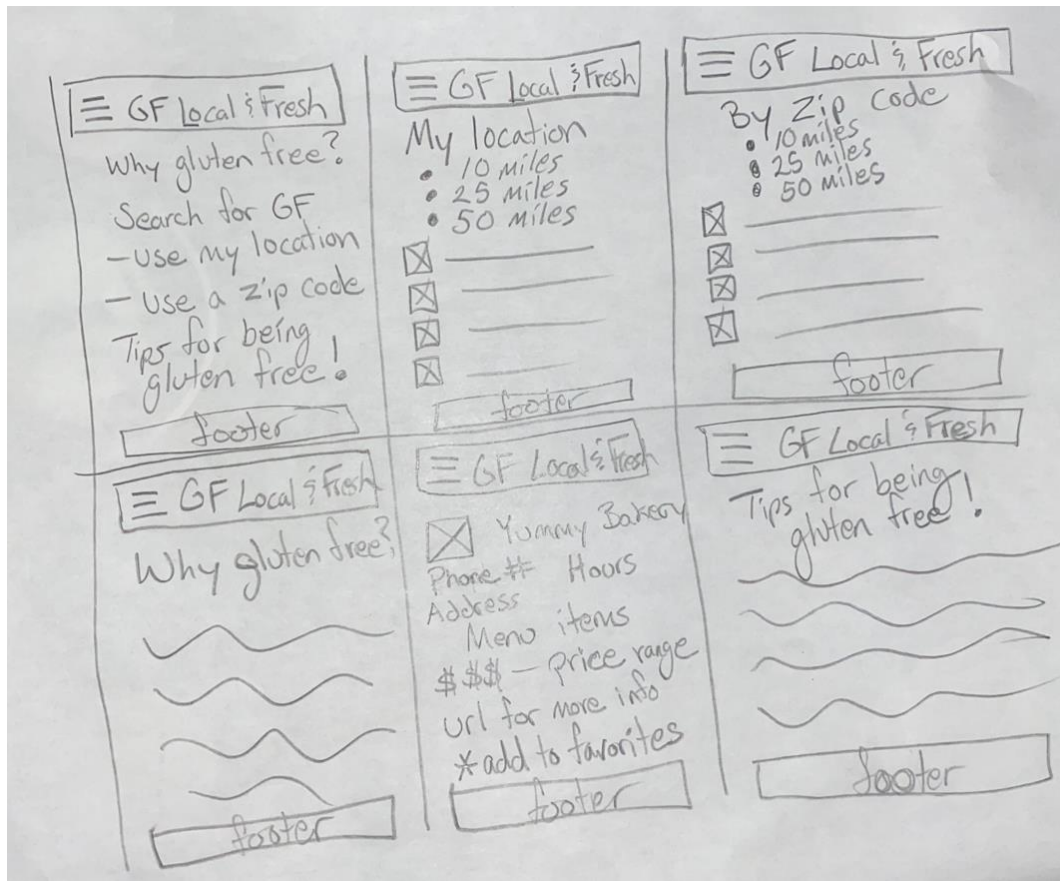 GF Local & Fresh
Why gluten free?
Search for GF
- use my location
- use a zip code
Tips for being
gluten free!
footer
GF Local & Fresh
My location
• 10 miles
• 25 miles
• 50 miles
footer
GF Local & Fresh
By Zip code
• 10 miles
• 25 miles
• 50 miles
footer
GF Local & Fresh
Why gluten free?
footer
GF Local & Fresh
Yummy Bakery
Phone # Hours
Address
Menu items
$$$ - price range
url for more info
* add to favorites
footer
GF Local & Fresh
Tips for being
gluten free!
footer